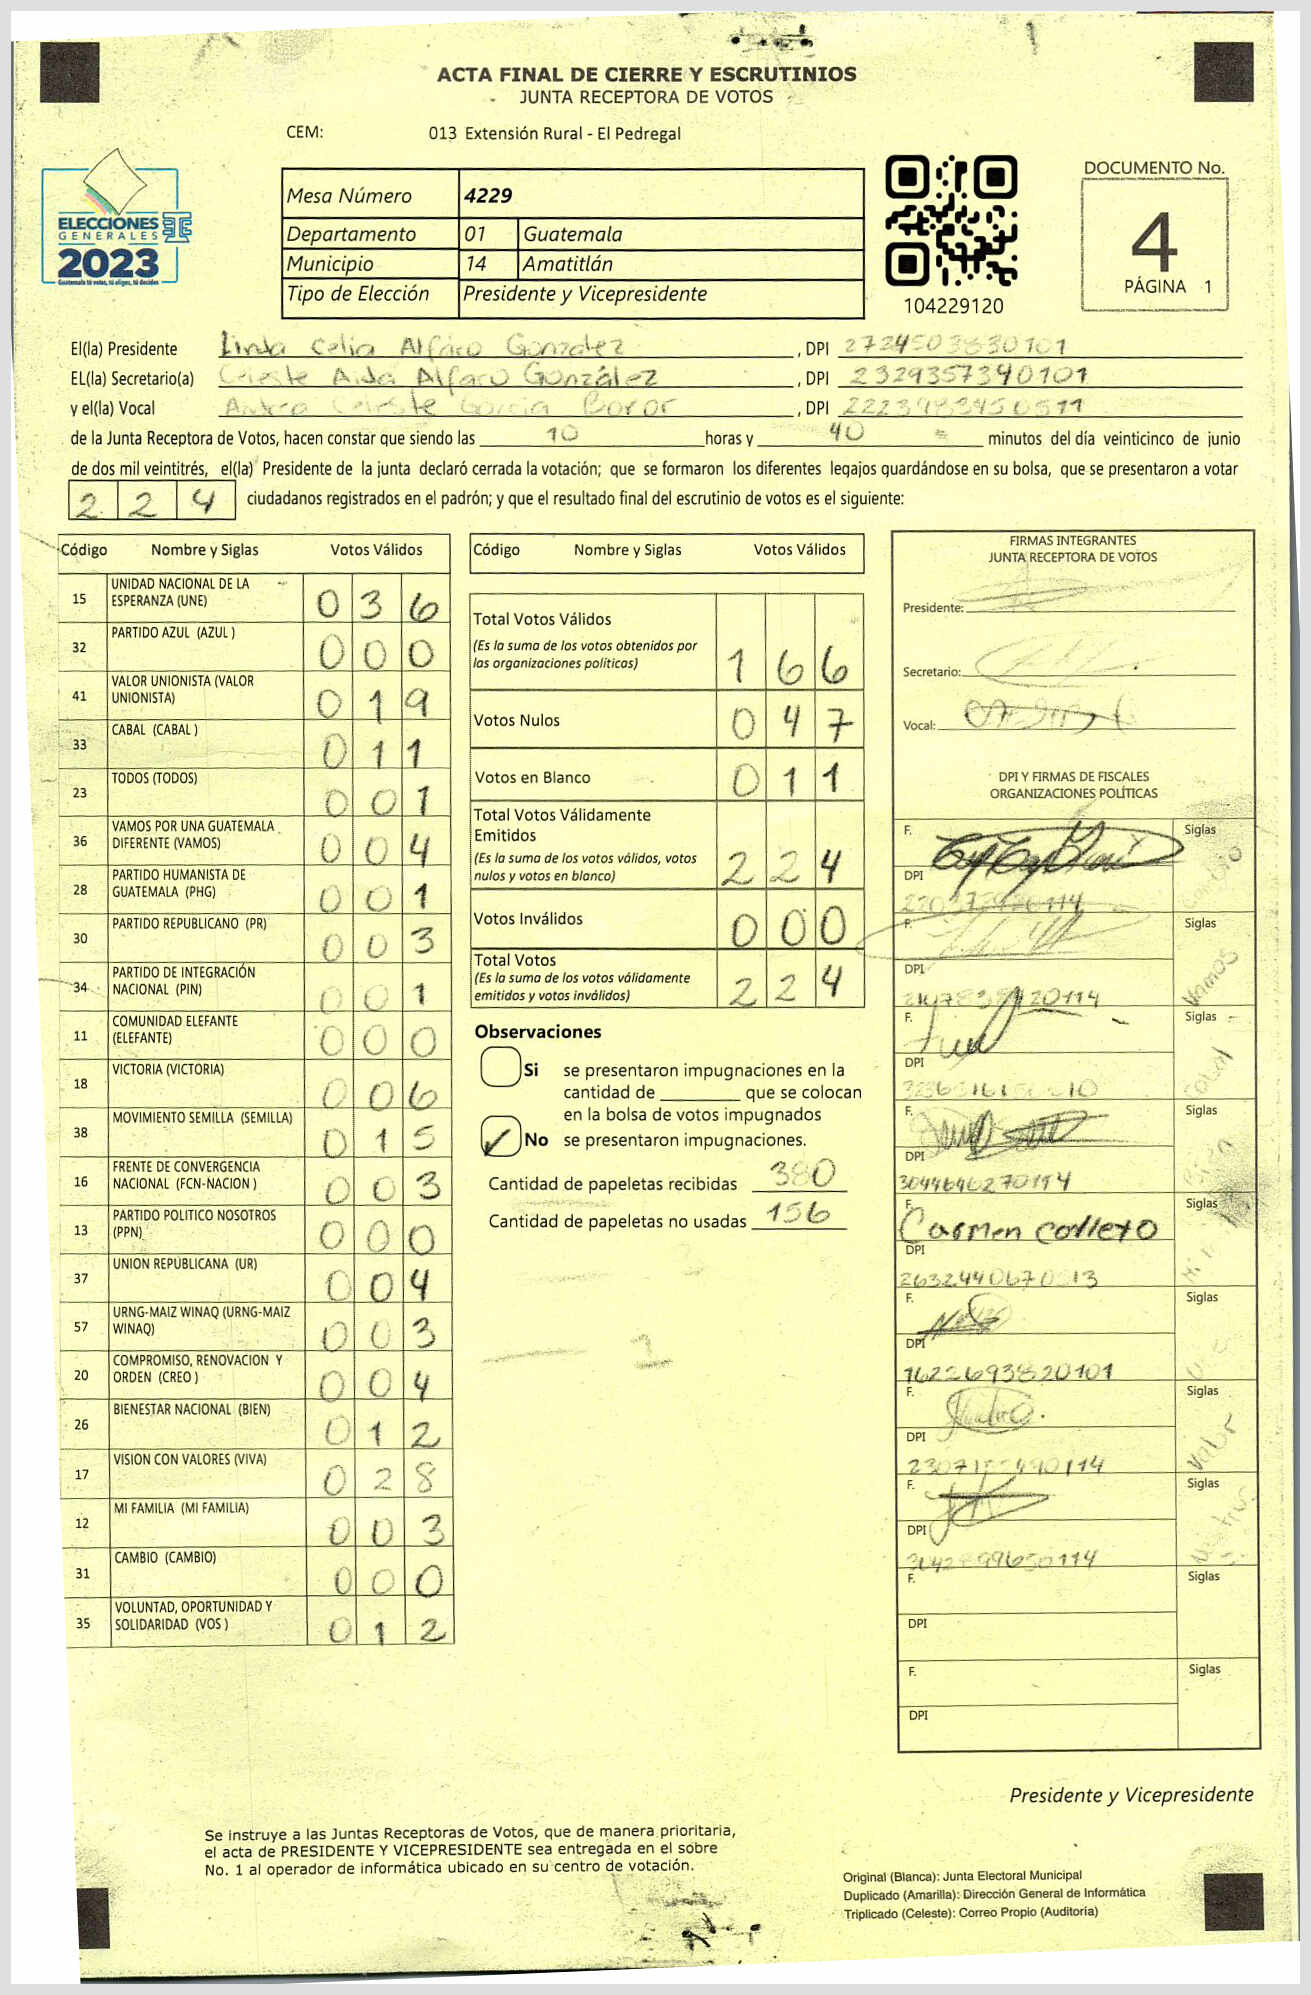 ACTA FINAL DE CIERRE Y ESCRUTINIOS
JUNTA RECEPTORA DE VOTOS
CEM: 013 Extensión Rural - El Pedregal
ELECCIONES
GENERALES
2023
Guatemala tú votas, tú eliges, tú decides
Mesa Número 4229
Departamento 01 Guatemala
Municipio 14 Amatitlán
Tipo de Elección Presidente y Vicepresidente
104229120
DOCUMENTO No.
4
PÁGINA 1
El(la) Presidente Linda Celia Alfaro Gonzalez, DPI 2724503830101
EL(la) Secretario(a) Celeste Aida Alfaro González, DPI 2329357340101
y el(la) Vocal Andrea Celeste Garcia Boror, DPI
de la Junta Receptora de Votos, hacen constar que siendo las 10 horas y 40 minutos del día veinticinco de junio
de dos mil veintitrés, el(la) Presidente de la junta declaró cerrada la votación; que se formaron los diferentes legajos guardándose en su bolsa, que se presentaron a votar
224 ciudadanos registrados en el padrón; y que el resultado final del escrutinio de votos es el siguiente:
Código Nombre y Siglas Votos Válidos
15 UNIDAD NACIONAL DE LA ESPERANZA (UNE) 036
32 PARTIDO AZUL (AZUL ) 000
41 VALOR UNIONISTA (VALOR UNIONISTA) 019
33 CABAL (CABAL ) 011
23 TODOS (TODOS) 001
36 VAMOS POR UNA GUATEMALA DIFERENTE (VAMOS) 004
28 PARTIDO HUMANISTA DE GUATEMALA (PHG) 001
30 PARTIDO REPUBLICANO (PR) 003
34 PARTIDO DE INTEGRACIÓN NACIONAL (PIN) 001
11 COMUNIDAD ELEFANTE (ELEFANTE) 000
18 VICTORIA (VICTORIA) 006
38 MOVIMIENTO SEMILLA (SEMILLA) 015
16 FRENTE DE CONVERGENCIA NACIONAL (FCN-NACION ) 003
13 PARTIDO POLITICO NOSOTROS (PPN) 000
37 UNION REPUBLICANA (UR) 004
57 URNG-MAIZ WINAQ (URNG-MAIZ WINAQ) 003
20 COMPROMISO, RENOVACION Y ORDEN (CREO ) 004
26 BIENESTAR NACIONAL (BIEN) 012
17 VISION CON VALORES (VIVA) 028
12 MI FAMILIA (MI FAMILIA) 003
31 CAMBIO (CAMBIO) 000
35 VOLUNTAD, OPORTUNIDAD Y SOLIDARIDAD (VOS ) 012
Código Nombre y Siglas Votos Válidos
Total Votos Válidos
(Es la suma de los votos obtenidos por
las organizaciones políticas) 166
Votos Nulos 047
Votos en Blanco 011
Total Votos Válidamente
Emitidos
(Es la suma de los votos válidos, votos
nulos y votos en blanco) 224
Votos Inválidos 000
Total Votos
(Es la suma de los votos válidamente
emitidos y votos inválidos) 224
Observaciones
Si se presentaron impugnaciones en la
cantidad de ________ que se colocan
en la bolsa de votos impugnados
No se presentaron impugnaciones.
Cantidad de papeletas recibidas 380
Cantidad de papeletas no usadas 156
FIRMAS INTEGRANTES
JUNTA RECEPTORA DE VOTOS
Presidente:
Secretario:
Vocal:
DPI Y FIRMAS DE FISCALES
ORGANIZACIONES POLÍTICAS
F. Siglas
DPI
F. Siglas Vamos
DPI
F. Siglas Cabal
DPI
F. Siglas Bien
DPI 3044646270114
F. Carmen Colleto Siglas
DPI
F. Siglas
DPI 1622693820101
F. Siglas Valor
DPI
F. Siglas
DPI
F. Siglas
DPI
F. Siglas
DPI
Presidente y Vicepresidente
Se instruye a las Juntas Receptoras de Votos, que de manera prioritaria,
el acta de PRESIDENTE Y VICEPRESIDENTE sea entregada en el sobre
No. 1 al operador de informática ubicado en su centro de votación.
Original (Blanca): Junta Electoral Municipal
Duplicado (Amarilla): Dirección General de Informática
Triplicado (Celeste): Correo Propio (Auditoría)